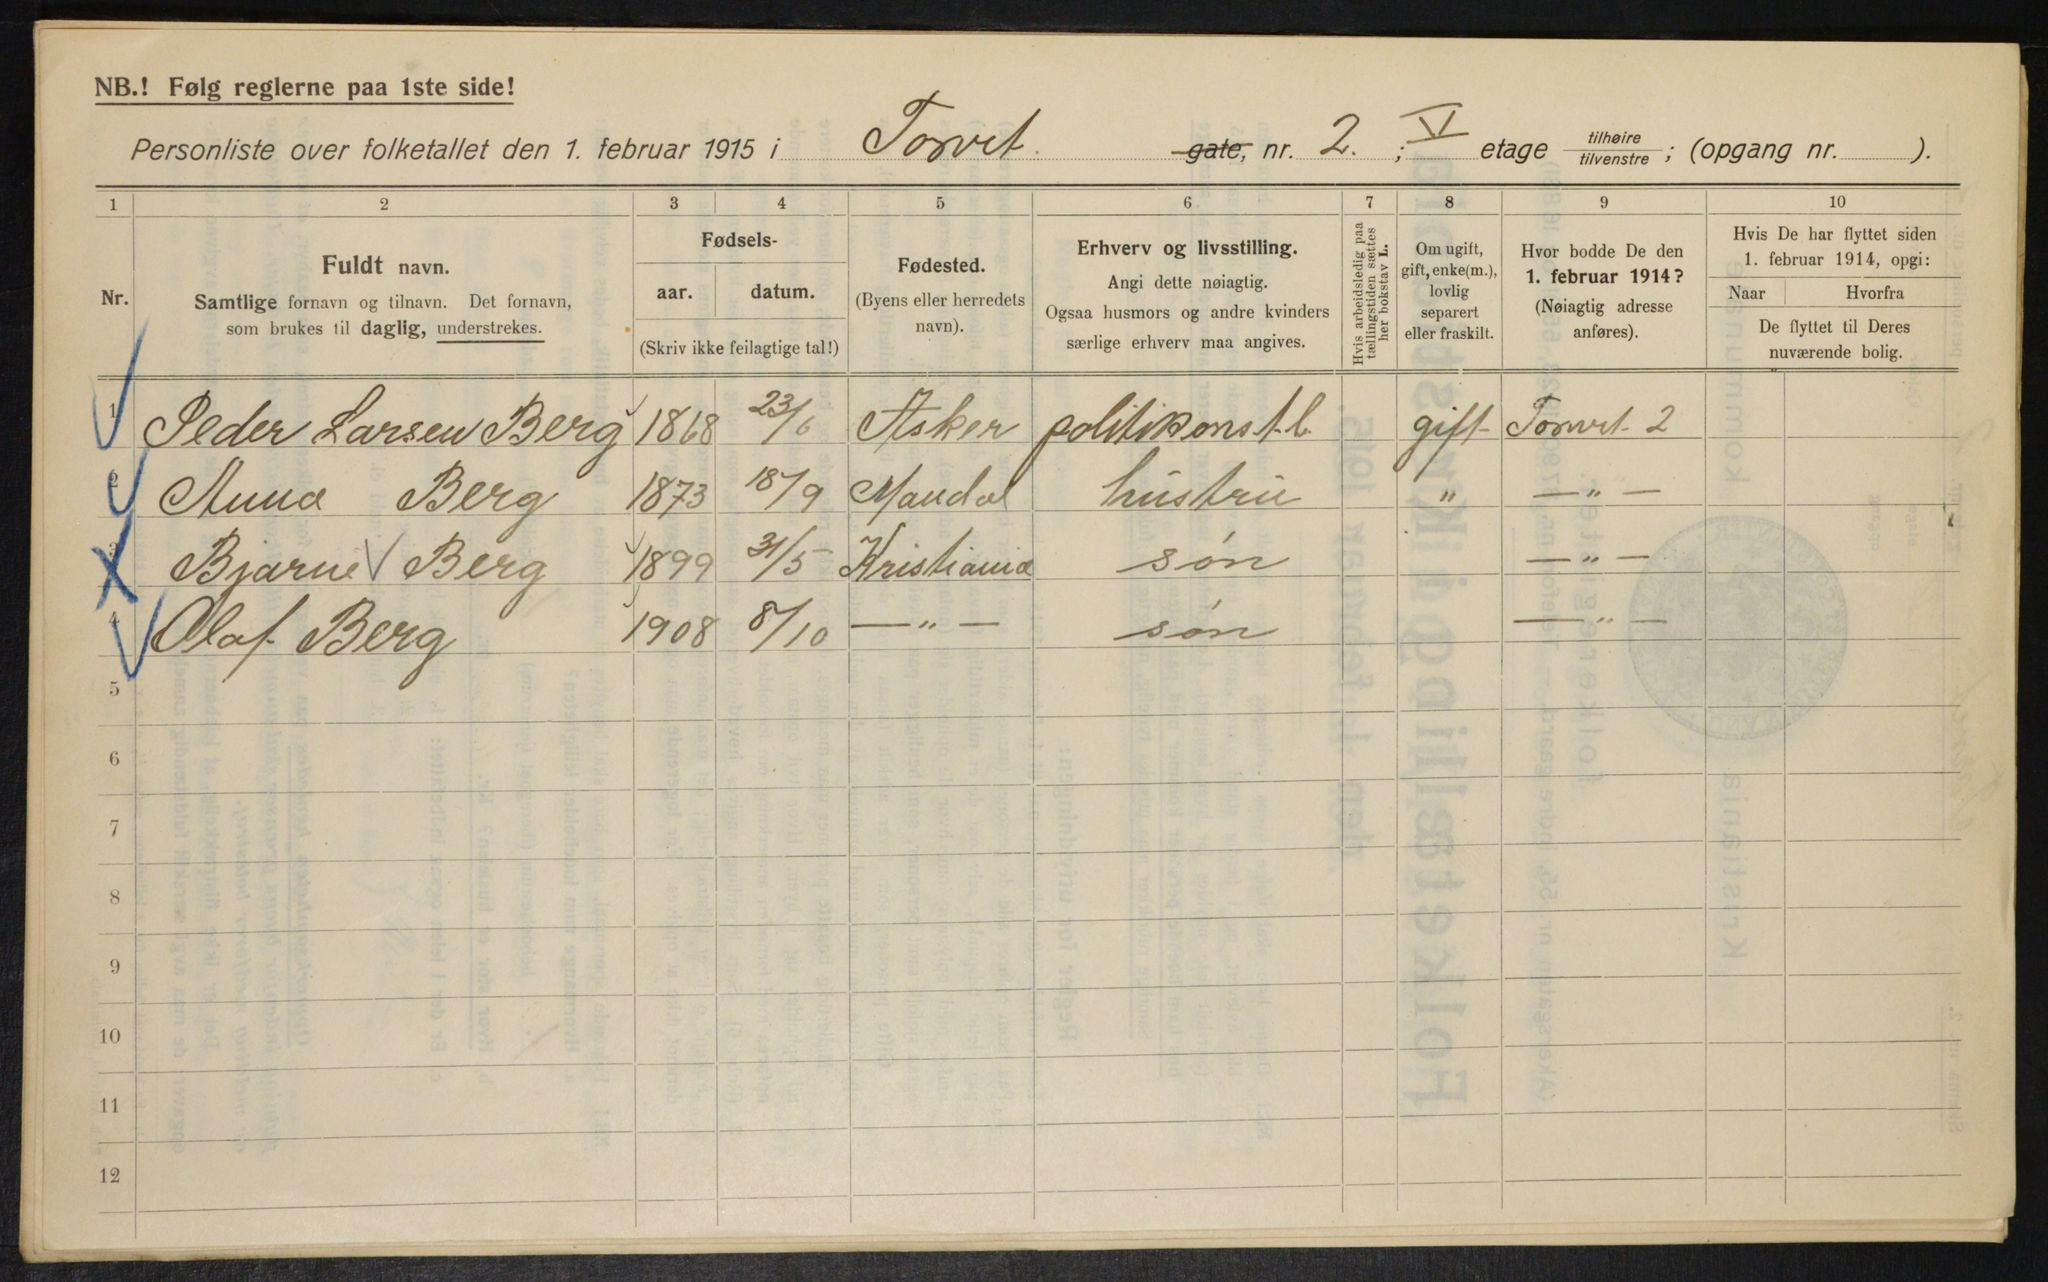 NB.! Følg reglerne paa 1ste side!
Personliste over folketallet den 1. februar 1915 i Torvet. gate, nr. 2. ; V etage tilhøire tilvenstre ; (opgang nr. ).
1 2 3 4 5 6 7 8 9 10
Nr.
Fuldt navn.
Samtlige fornavn og tilnavn. Det fornavn,
som brukes til daglig, understrekes.
Fødsels-
aar. datum.
(Skriv ikke feilagtige tal!)
Fødested.
(Byens eller herredets
navn).
Erhverv og livsstilling.
Angi dette nøiagtig.
Ogsaa husmors og andre kvinders
særlige erhverv maa angives.
Hvis arbeidsledig paa
tællingstiden sættes
her bokstav L.
Om ugift,
gift, enke(m.),
lovlig
separert
eller fraskilt.
Hvor bodde De den
1. februar 1914?
(Nøiagtig adresse
anføres).
Hvis De har flyttet siden
1. februar 1914, opgi:
Naar Hvorfra
De flyttet til Deres
nuværende bolig.
1 Peder Larsen Berg 1868 23/6 Asker politikonstb. gift Torvet 2
2 Anna Berg 1873 18/9 Mandal hustru " — " —
3 Bjarne Berg 1899 31/5 Kristiania søn — " —
4 Olaf Berg 1908 8/10 — " — søn — " —
5
6
7
8
9
10
11
12